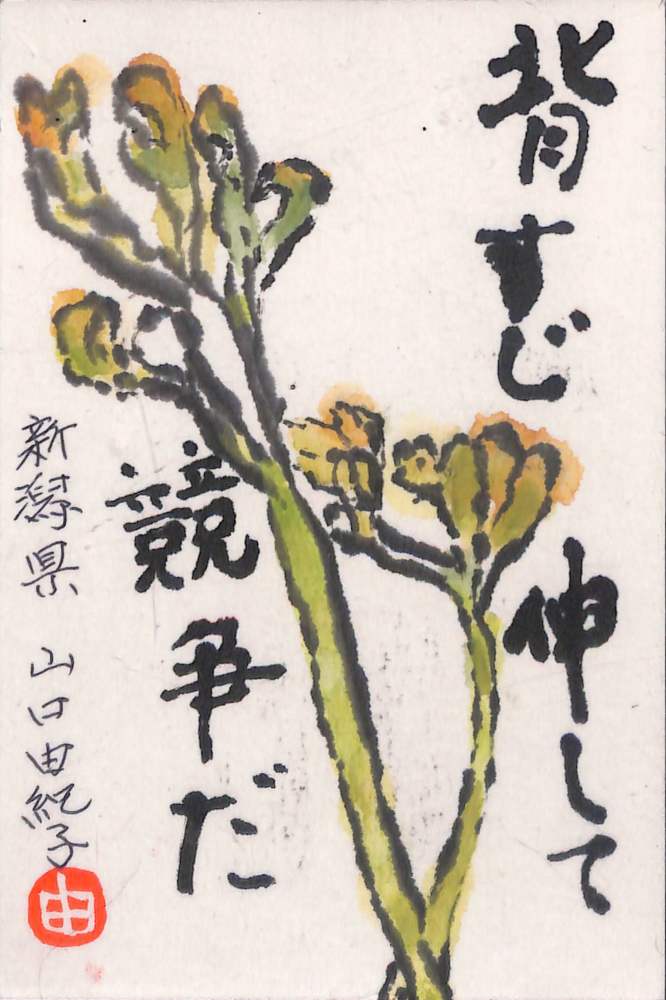 背すじ伸して
競争だ
新潟県 山口由紀子
由